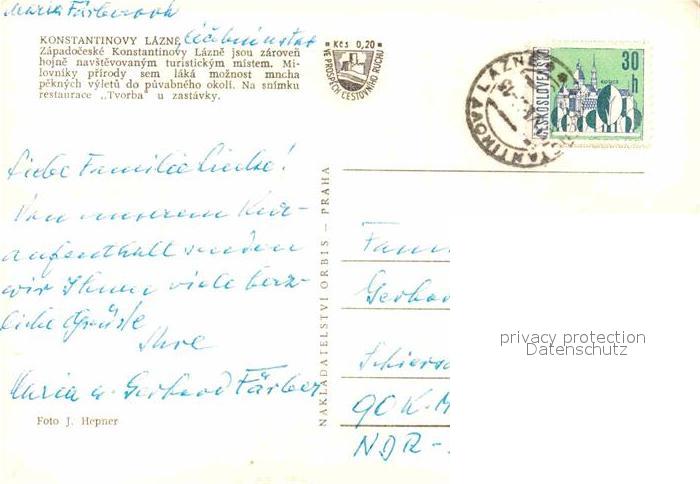 Maria Färberová
KONSTANTINOVY LÁZNĚ, Léčebný ústav
Západočeské Konstantinovy Lázně jsou zároveň
hojně navštěvovaným turistickým místem. Mi-
lovníky přírody sem láká možnost mnoha
pěkných výletů do půvabného okolí. Na snímku
restaurace „Tvorba" u zastávky.
Kčs 0,20
VE PROSPĚCH CESTOVNÍHO RUCHU
LÁZNĚ
KONSTANTINOVY
ČESKOSLOVENSKO
30 h
Liebe Familie Liecke!
Von unserem Kur-
aufenthalt senden
wir Ihnen viele herz-
liche Grüße
Ihre
Maria u. Gerhard Färber
Foto J. Hepner
NAKLADATELSTVÍ ORBIS - PRAHA
Fam
Gerha
Schiers
90 K-M
NDR-
privacy protection
Datenschutz